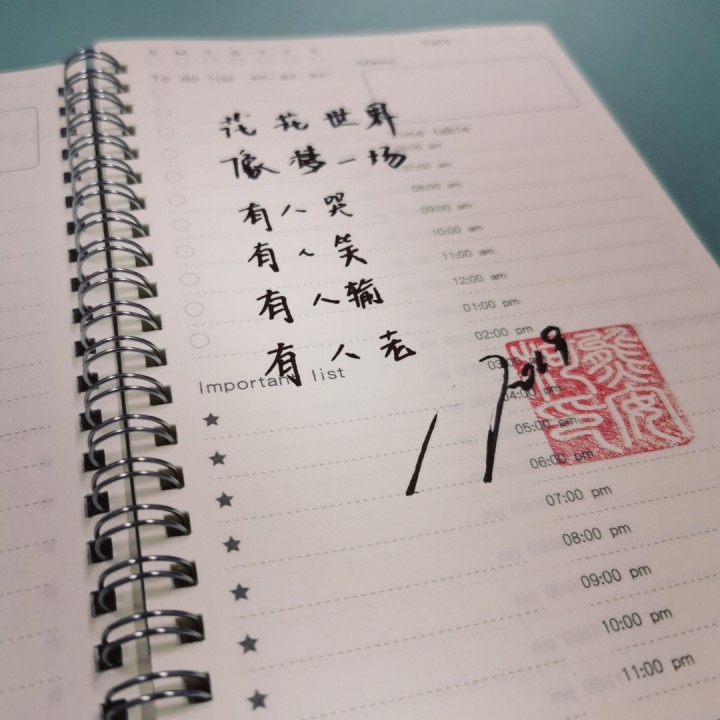 Date
S M T W T F S
Memo
To do list
花花世界
像梦一场
有人哭
有人笑
有人输
有人老
ime table
07:00 am
08:00 am
09:00 am
10:00 am
11:00 am
12:00 am
01:00 pm
02:00 pm
2019
04:00 pm
05:00 pm
06:00 pm
07:00 pm
08:00 pm
09:00 pm
10:00 pm
11:00 pm
Important list